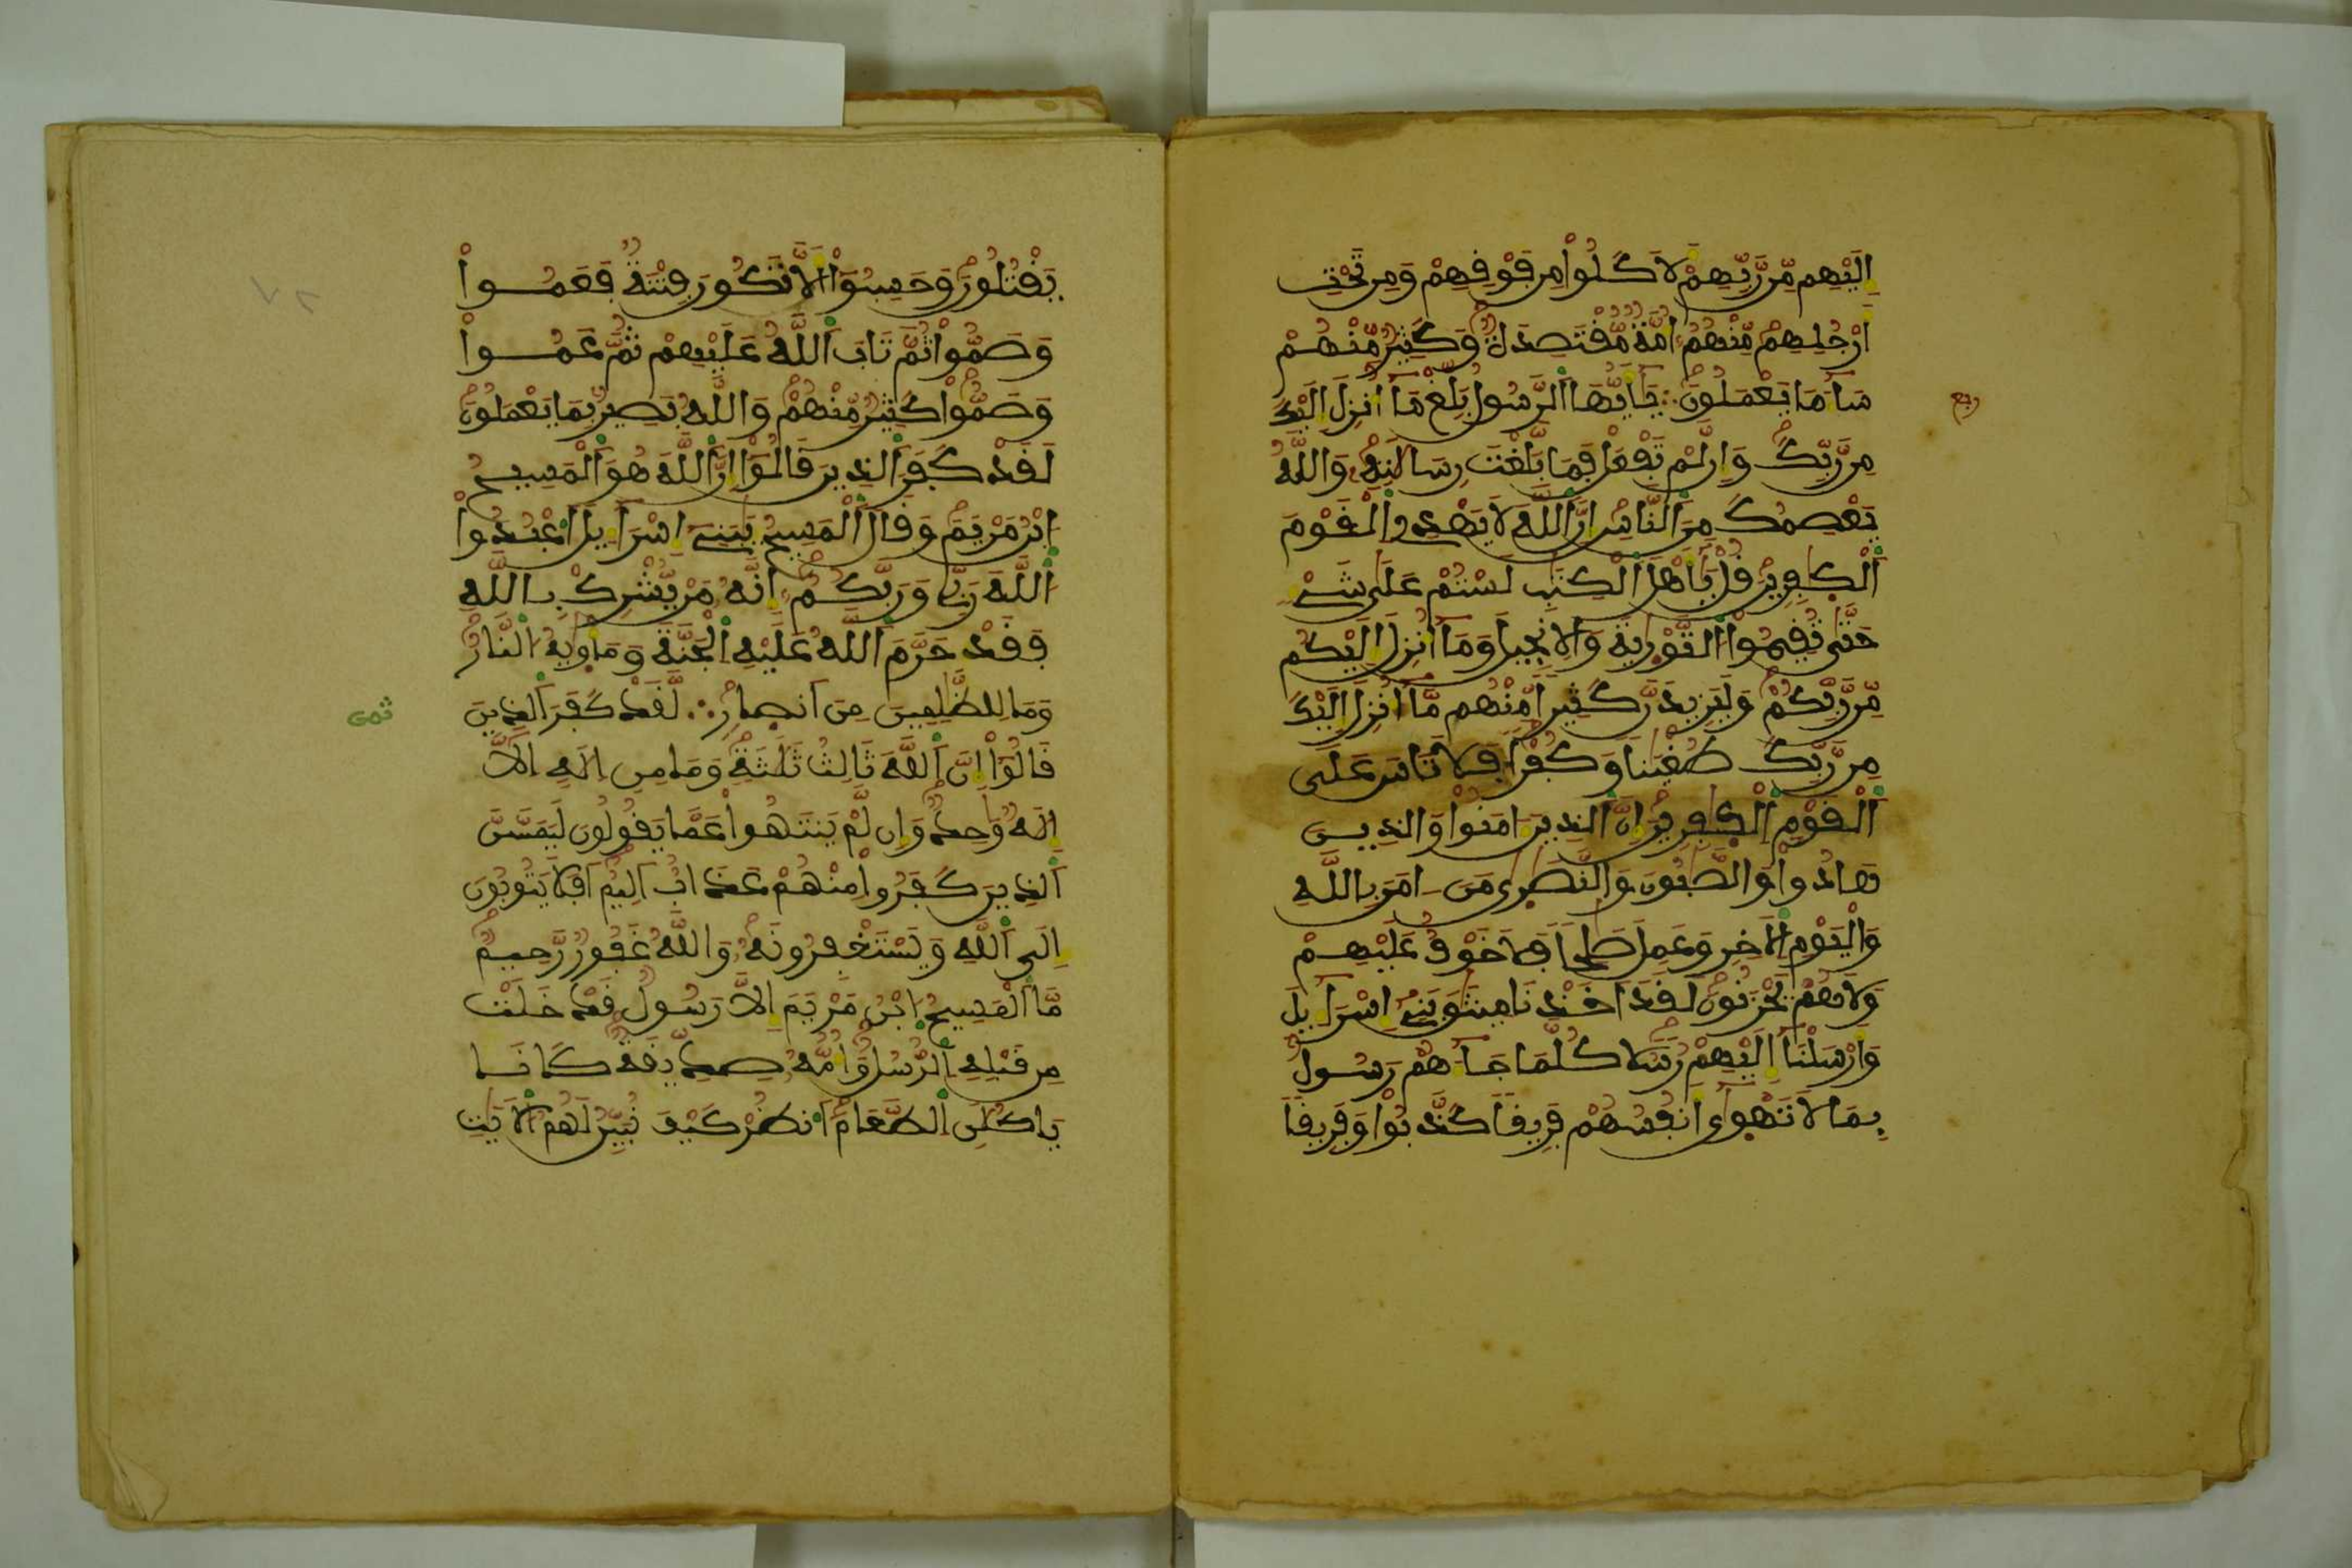 إِلَيْهِم مِّن رَّبِّهِمْ لَأَكَلُوا۟ مِن فَوْقِهِمْ وَمِن تَحْتِ
أَرْجُلِهِم مِّنْهُمُۥٓ أُمَّةٌ مُّقْتَصِدَةٌ وَكَثِيرٌ مِّنْهُمْ
سَآءَ مَا يَعْمَلُونَ ؞ يَٰٓأَيُّهَا ٱلرَّسُولُ بَلِّغْ مَآ أُنزِلَ إِلَيْكَ
مِن رَّبِّكَ وَإِن لَّمْ تَفْعَلْ فَمَا بَلَّغْتَ رِسَالَٰتِهِۦ وَٱللَّهُ
يَعْصِمُكَ مِنَ ٱلنَّاسِ إِنَّ ٱللَّهَ لَا يَهْدِى ٱلْقَوْمَ
ٱلْكَٰفِرِينَ قُلْ يَٰٓأَهْلَ ٱلْكِتَٰبِ لَسْتُمْ عَلَىٰ شَىْءٍ
حَتَّىٰ تُقِيمُوا۟ ٱلتَّوْرَىٰةَ وَٱلْإِنجِيلَ وَمَآ أُنزِلَ إِلَيْكُم
مِّن رَّبِّكُمْ وَلَيَزِيدَنَّ كَثِيرًا مِّنْهُم مَّآ أُنزِلَ إِلَيْكَ
مِن رَّبِّكَ طُغْيَٰنًا وَكُفْرًا فَلَا تَأْسَ عَلَى
ٱلْقَوْمِ ٱلْكَٰفِرِينَ إِنَّ ٱلَّذِينَ ءَامَنُوا۟ وَٱلَّذِينَ
هَادُوا۟ وَٱلصَّٰبُونَ وَٱلنَّصَٰرَىٰ مَنْ ءَامَنَ بِٱللَّهِ
وَٱلْيَوْمِ ٱلْأَخِرِ وَعَمِلَ صَٰلِحًا فَلَا خَوْفٌ عَلَيْهِمْ
وَلَا هُمْ يَحْزَنُونَ لَقَدْ أَخَذْنَا مِيثَٰقَ بَنِىٓ إِسْرَآءِيلَ
وَأَرْسَلْنَآ إِلَيْهِمْ رُسُلًا كُلَّمَا جَآءَهُمْ رَسُولٌ
بِمَا لَا تَهْوَىٰٓ أَنفُسُهُمْ فَرِيقًا كَذَّبُوا۟ وَفَرِيقًا
ربع
يَقْتُلُونَ وَحَسِبُوٓا۟ أَلَّا تَكُونَ فِتْنَةٌ فَعَمُوا۟
وَصَمُّوا۟ ثُمَّ تَابَ ٱللَّهُ عَلَيْهِمْ ثُمَّ عَمُوا۟
وَصَمُّوا۟ كَثِيرٌ مِّنْهُمْ وَٱللَّهُ بَصِيرٌۢ بِمَا يَعْمَلُونَ
لَقَدْ كَفَرَ ٱلَّذِينَ قَالُوٓا۟ إِنَّ ٱللَّهَ هُوَ ٱلْمَسِيحُ
ٱبْنُ مَرْيَمَ وَقَالَ ٱلْمَسِيحُ يَٰبَنِىٓ إِسْرَآءِيلَ ٱعْبُدُوا۟
ٱللَّهَ رَبِّى وَرَبَّكُمُۥٓ إِنَّهُۥ مَن يُّشْرِكْ بِٱللَّهِ
فَقَدْ حَرَّمَ ٱللَّهُ عَلَيْهِ ٱلْجَنَّةَ وَمَأْوَىٰهُ ٱلنَّارُ
وَمَا لِلظَّٰلِمِينَ مِنْ أَنصَارٍ ؞ لَّقَدْ كَفَرَ ٱلَّذِينَ
قَالُوٓا۟ إِنَّ ٱللَّهَ ثَالِثُ ثَلَٰثَةٍ وَمَا مِنِ إِلَٰهٍ إِلَّآ
إِلَٰهٌ وَٰحِدٌ وَإِن لَّمْ يَنتَهُوا۟ عَمَّا يَقُولُونَ لَيَمَسَّنَّ
ٱلَّذِينَ كَفَرُوا۟ مِنْهُمْ عَذَابٌ أَلِيمٌ أَفَلَا يَتُوبُونَ
إِلَى ٱللَّهِ وَيَسْتَغْفِرُونَهُۥ وَٱللَّهُ غَفُورٌ رَّحِيمٌ
مَّا ٱلْمَسِيحُ ٱبْنُ مَرْيَمَ إِلَّا رَسُولٌ قَدْ خَلَتْ
مِن قَبْلِهِ ٱلرُّسُلُ وَأُمُّهُۥ صِدِّيقَةٌ كَانَا
يَاكُلَٰنِ ٱلطَّعَامَ ٱنظُرْ كَيْفَ نُبَيِّنُ لَهُمُ ٱلْأَيَٰتِ
ثمن